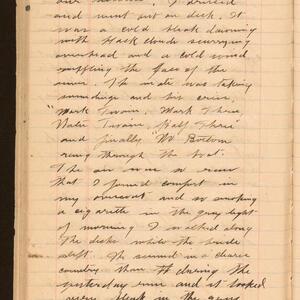 our . I dressed
and went out on deck. It
was a cold bleak dawning
with black clouds scurrying
overhead and a cold wind
ruffling the face of the
river. The mate was taking
soundings and his cries,
"Mark Twain, Mark Three,
Water Twain, Half Three"
and finally No Bottom
rang through the boat.
The air was so raw
that I found comfort in
my overcoat and so smoking
a cigarette in the gray light
of morning I walked along
The decks while the
slept. The seemed a
country than it during the
yesterday and it looked
bleak in the gray